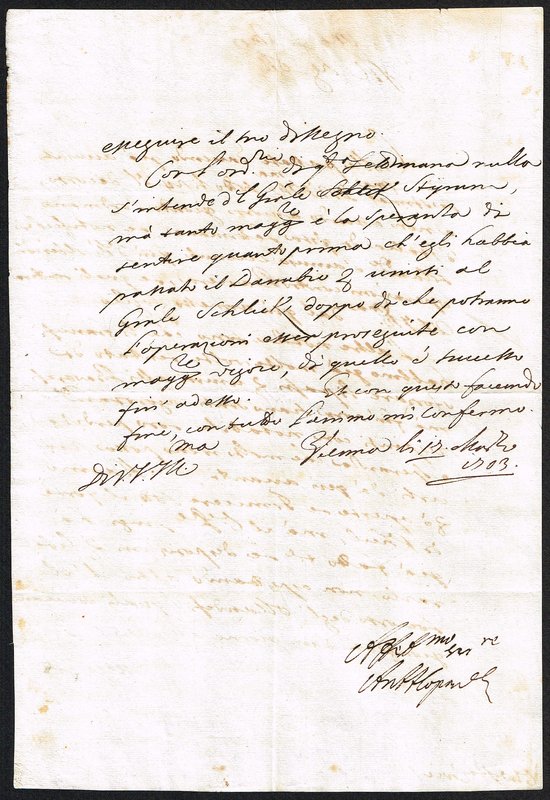 esseguire il suo dissegno.
Con l'ord.rio di q.ta Settimana nulla
s'intende d'l Gñale Styrum,
mà tanto magg.re è la speranza di
sentire quanto prima ch'egli habbia
passato il Danubio p unirsi al
Gñale Schlick, doppo di che potranno
l'operazioni esser proseguite con
magg.re vigore, di quello è successo
fin' adesso. Et con questo facendo
fine, con tutto l'animo mi confermo.
Vienna li 17. Marzo
1703.
Di V. S. Ill.ma
Aff.mo Ser.re
Ant.